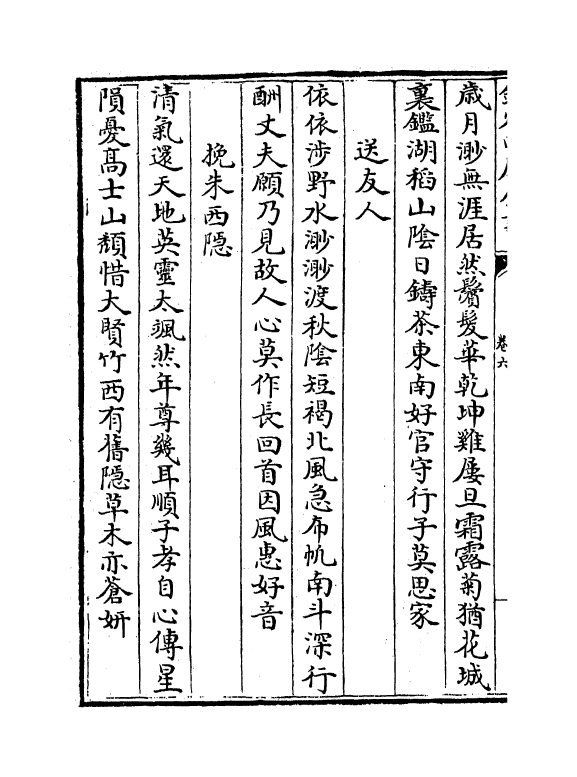 歳月渺無涯居然鬢髮華乾坤雞屢旦霜露菊猶花城
裏鑑湖稻山陰日鑄茶東南好官守行子莫思家
送友人
依依涉野水渺渺渡秋陰短褐北風急布帆南斗深行
酬丈夫願乃見故人心莫作長回首因風惠好音
挽朱西隠
清氣還天地英靈太颯然年尊幾耳順子孝自心傳星
隕憂髙士山頹惜大賢竹西有舊隠草木亦蒼妍
卷六